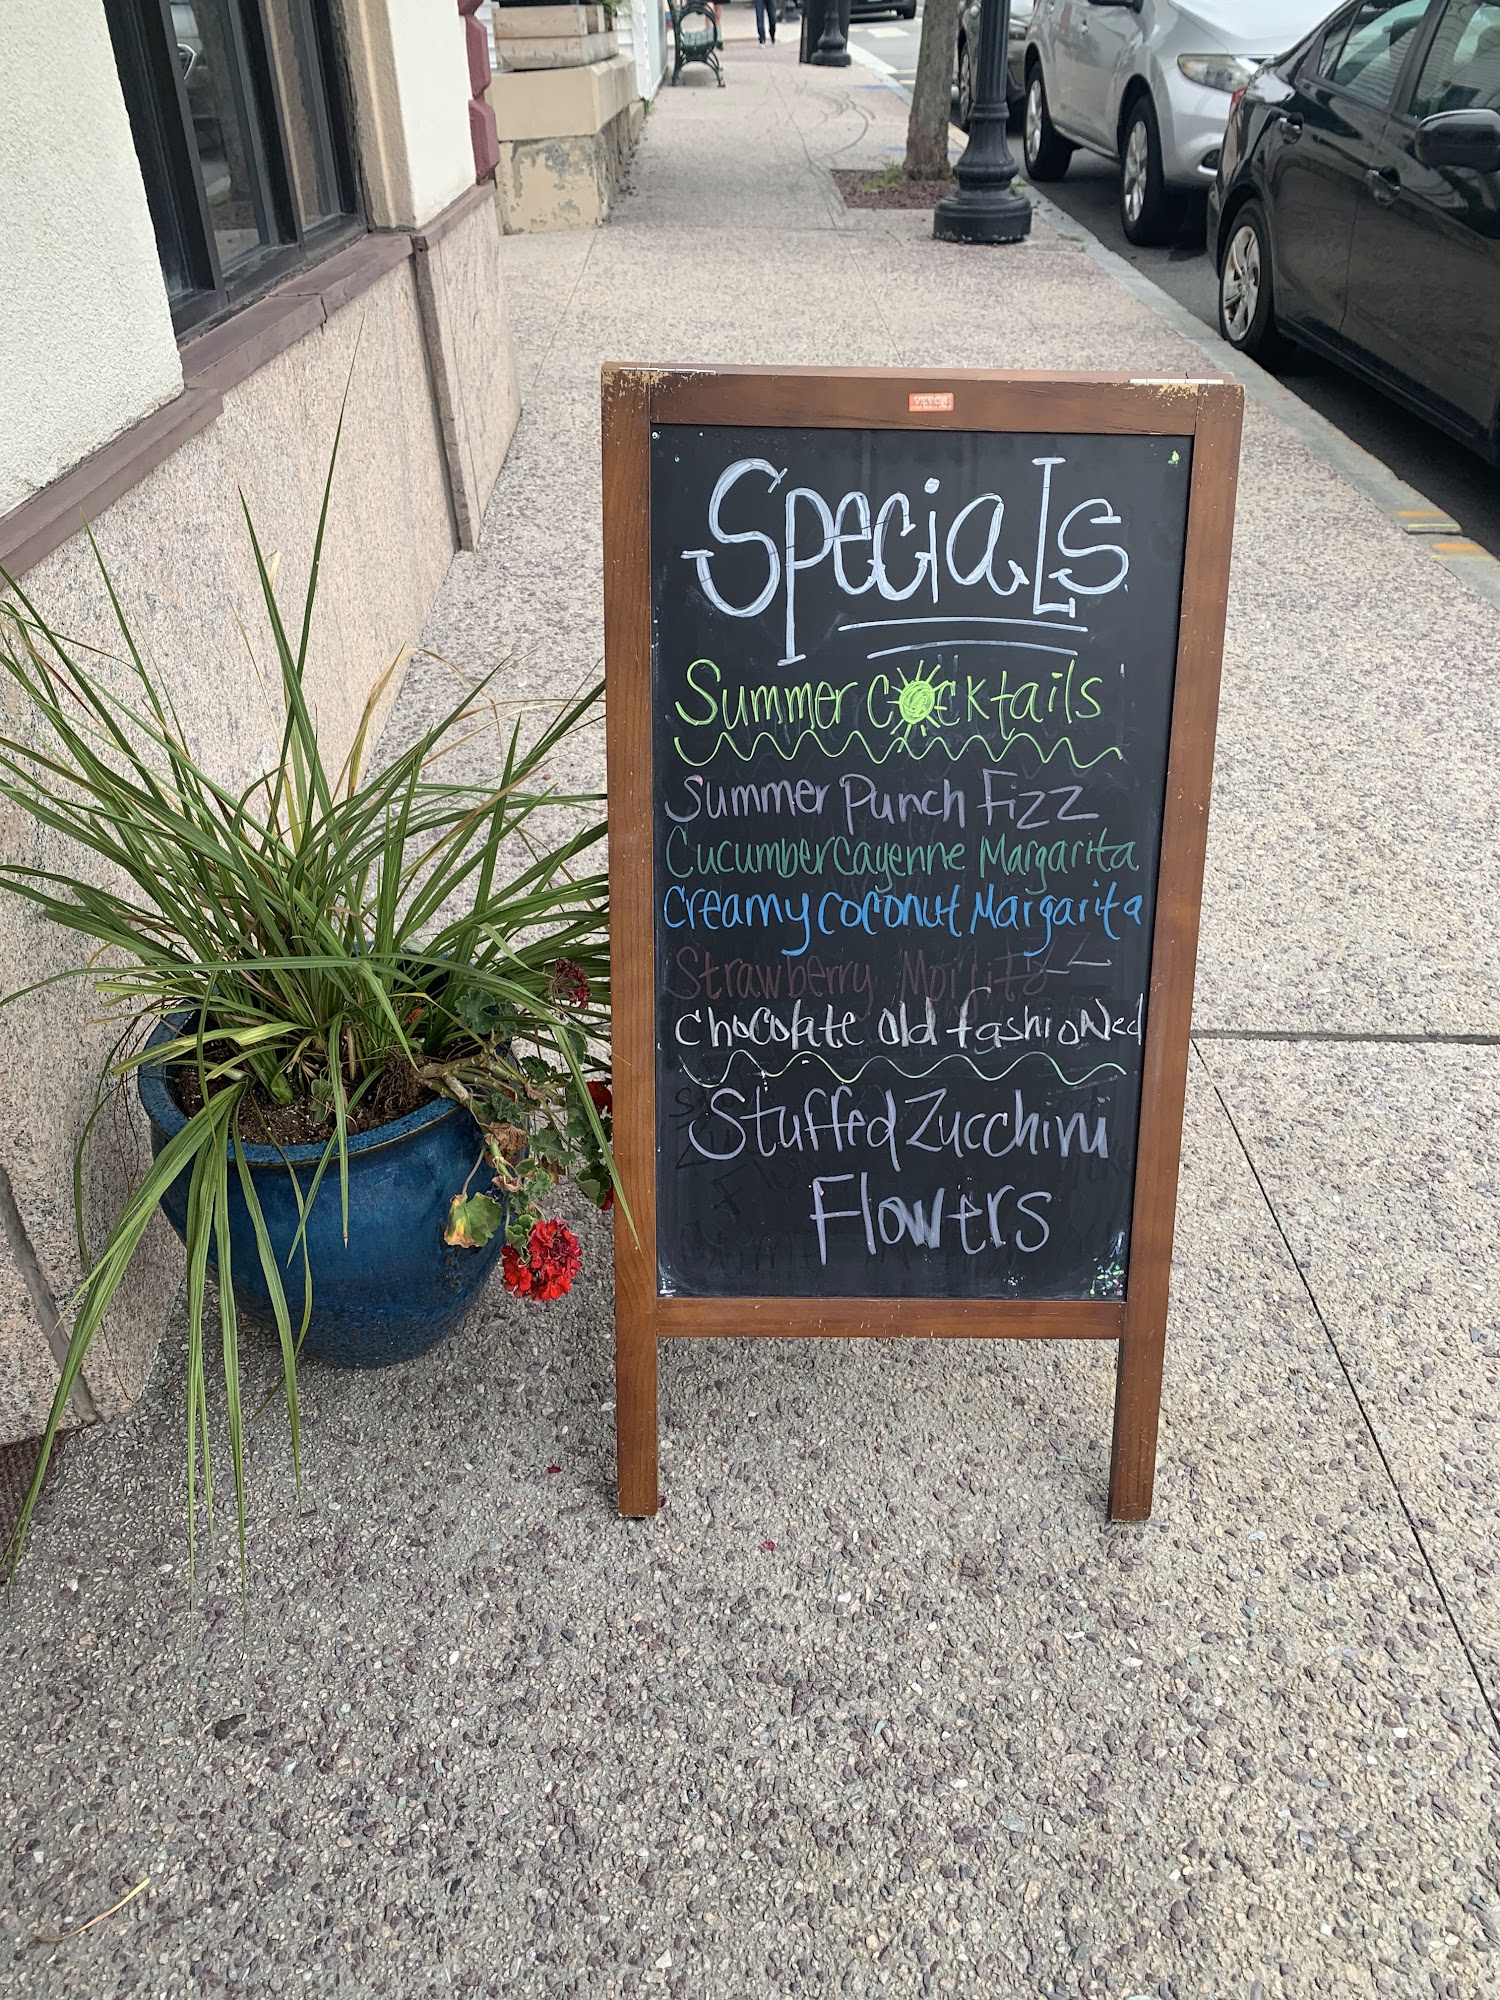 VEVOR
SpeciaLs
Summer Cocktails
Summer Punch Fizz
Cucumber Cayenne Margarita
Creamy Coconut Margarita
Strawberry Mojito
Chocolate Old fashioNed
Stuffed Zucchini
Flowers